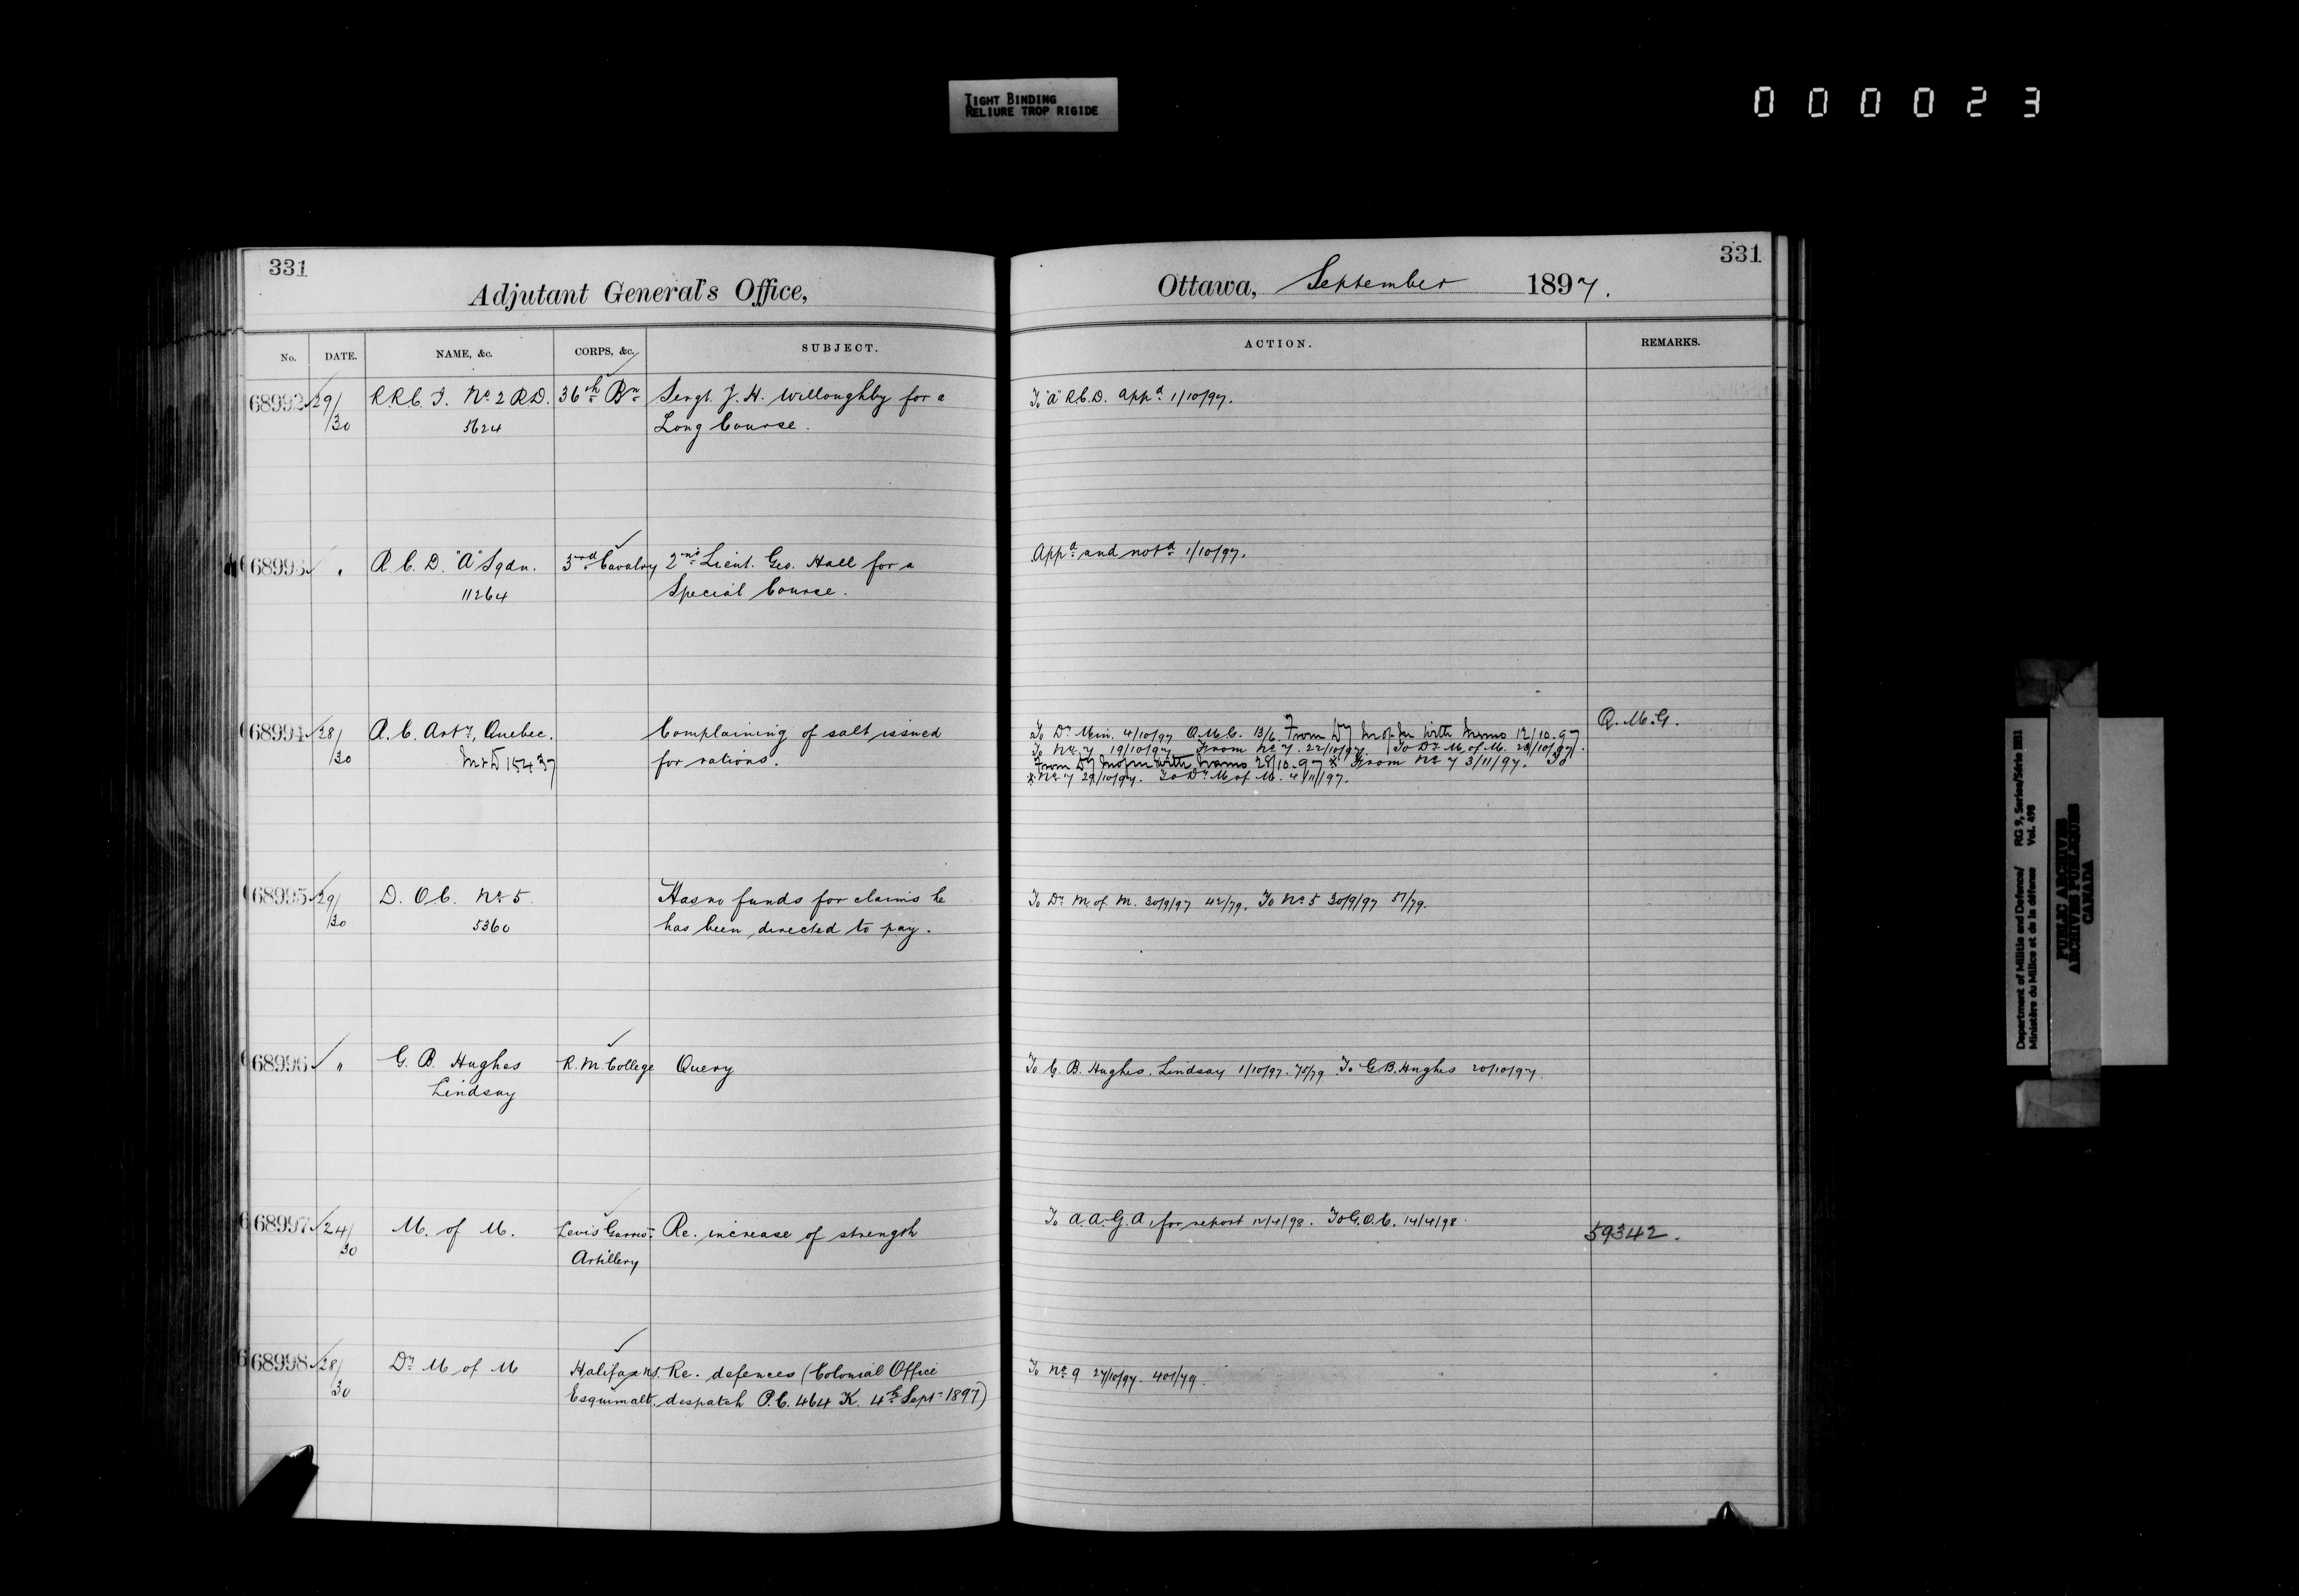 TIGHT BINDING
RELIURE TROP RIGIDE
000023
331
Adjutant General's Office,
No. DATE. NAME, &c. CORPS, &c. SUBJECT.
68992 29/30 R.R.C.I. No 2 R.D. 36th Bn Sergt. J. H. Willoughby for a
5624 Long Course.
68993 " R.C.D. "A" Sqdn. 3rd Cavalry 2nd Lieut. Geo. Hall for a
11264 Special Course.
68994 28/30 R.C. Arty, Quebec. Complaining of salt issued
M & D 15437 for rations.
68995 29/30 D.O.C. No 5. Has no funds for claims he
5360 has been directed to pay.
68996 " G. B. Hughes R.M. College Query
Lindsay
68997 24/30 M. of M. Levis Garrisn Re. increase of strength
Artillery
68998 28/30 Dy M of M Halifax N.S. Re. defences (Colonial Office
Esquimalt. despatch P.C. 464 K. 4th Sept 1897)
331
Ottawa, September 1897.
ACTION. REMARKS.
To "A" R.C.D. appd 1/10/97.
Appd and notd 1/10/97.
To Dy Min. 4/10/97 Q.M.G. 13/6 From Dy M of M with memo 12/10.97 Q.M.G.
To No 7 19/10/97 From No 7. 22/10/97. To Dy M. of M. 23/10/97.
From Dy M of M with memo 28/10.97 x From No 7 3/11/97. To
x No 7 29/10/97. To Dy M of M. 4/11/97.
To Dy M. of M. 30/9/97 42/79. To No 5 30/9/97 51/79.
To G. B. Hughes, Lindsay 1/10/97. 75/79 To G.B. Hughes 20/10/97.
To A.A.G.A, for report 12/4/98. To G.O.C. 14/4/98.
59342.
To No 9 27/10/97. 401/79.
Department of Militia and Defence/ RG 9, Series/Série IIB1
Ministère du Milice et de la défense Vol. 498
PUBLIC ARCHIVES
ARCHIVES PUBLIQUES
CANADA